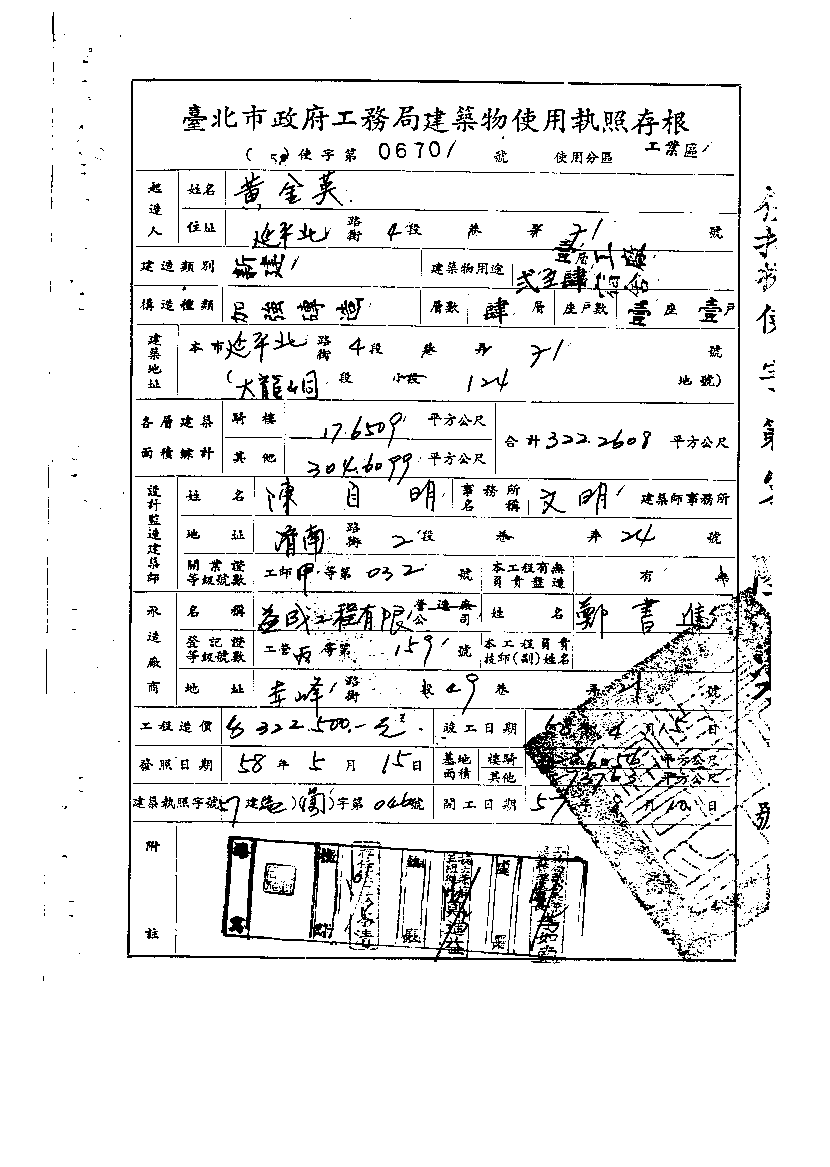 臺北市政府工務局建築物使用執照存根
(58)使字第 06701 號 使用分區 工業區
起造人 姓名 黃金英
住址 延平北 路街 4段 巷 弄 71 號
建造類別 新設 建築物用途 壹層工廠
弍至肆宿舍
構造種類 加強磚造 層數 肆 層 座戶數 壹 座 壹戶
建築地址 本市延平北 路街 4段 巷 弄 71 號
(大龍峒 段 小段 124 地號)
各層建築面積總計 騎樓 17.6509 平方公尺 合計322.2608 平方公尺
其他 304.6099 平方公尺
設計監造建築師 姓名 陳 自 明 事務所名稱 文明 建築師事務所
地址 濟南 路街 2段 巷 弄 24 號
開業證等級號數 工師甲等第 032 號 本工程有無負責監造 有 無
承造廠商 名稱 益成工程有限 營造廠公司 姓名 鄭書進
登記證等級號數 工營丙等第 159 號 本工程負責技師(副)姓名
地址 赤峰 路街 段49巷 弄 21 號
工程造價 322.500.-元 竣工日期 58年4月15日
發照日期 58年5月15日 基地面積 騎樓 平方公尺
其他 平方公尺
建築執照字號 57建 字第046號 開工日期 57年9月10日
附註